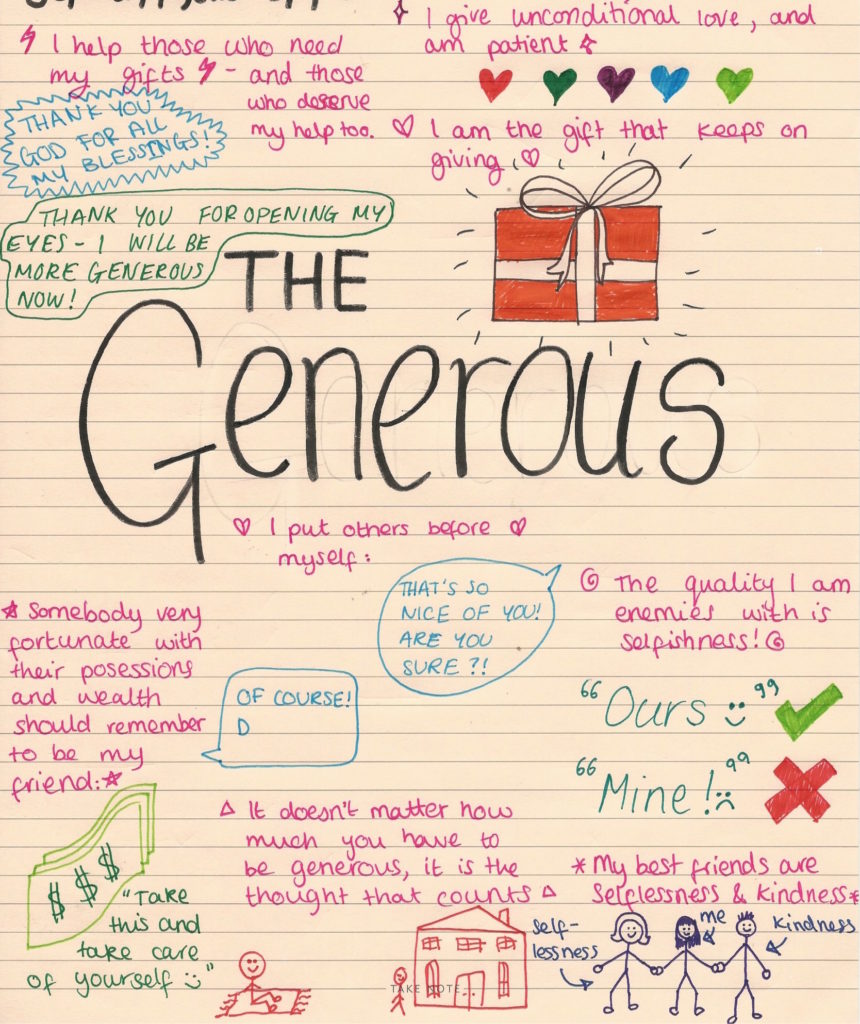 I give unconditional love, and
am patient
I help those who need
my gifts - and those
who deserve
my help too.
THANK YOU
GOD FOR ALL
MY BLESSINGS!
I am the gift that keeps on
giving
THANK YOU FOR OPENING MY
EYES - I WILL BE
MORE GENEROUS
NOW!
THE
Generous
I put others before
myself:
THAT'S SO
NICE OF YOU!
ARE YOU
SURE?!
OF COURSE!
D
The quality I am
enemies with is
selfishness!
"Ours"
"Mine!"
Somebody very
fortunate with
their posessions
and wealth
should remember
to be my
friend:
$ $ $
"Take
this and
take care
of yourself"
It doesn't matter how
much you have to
be generous, it is the
thought that counts
My best friends are
Selflessness & Kindness
self-
lessness
me
kindness
TAKE NOTE